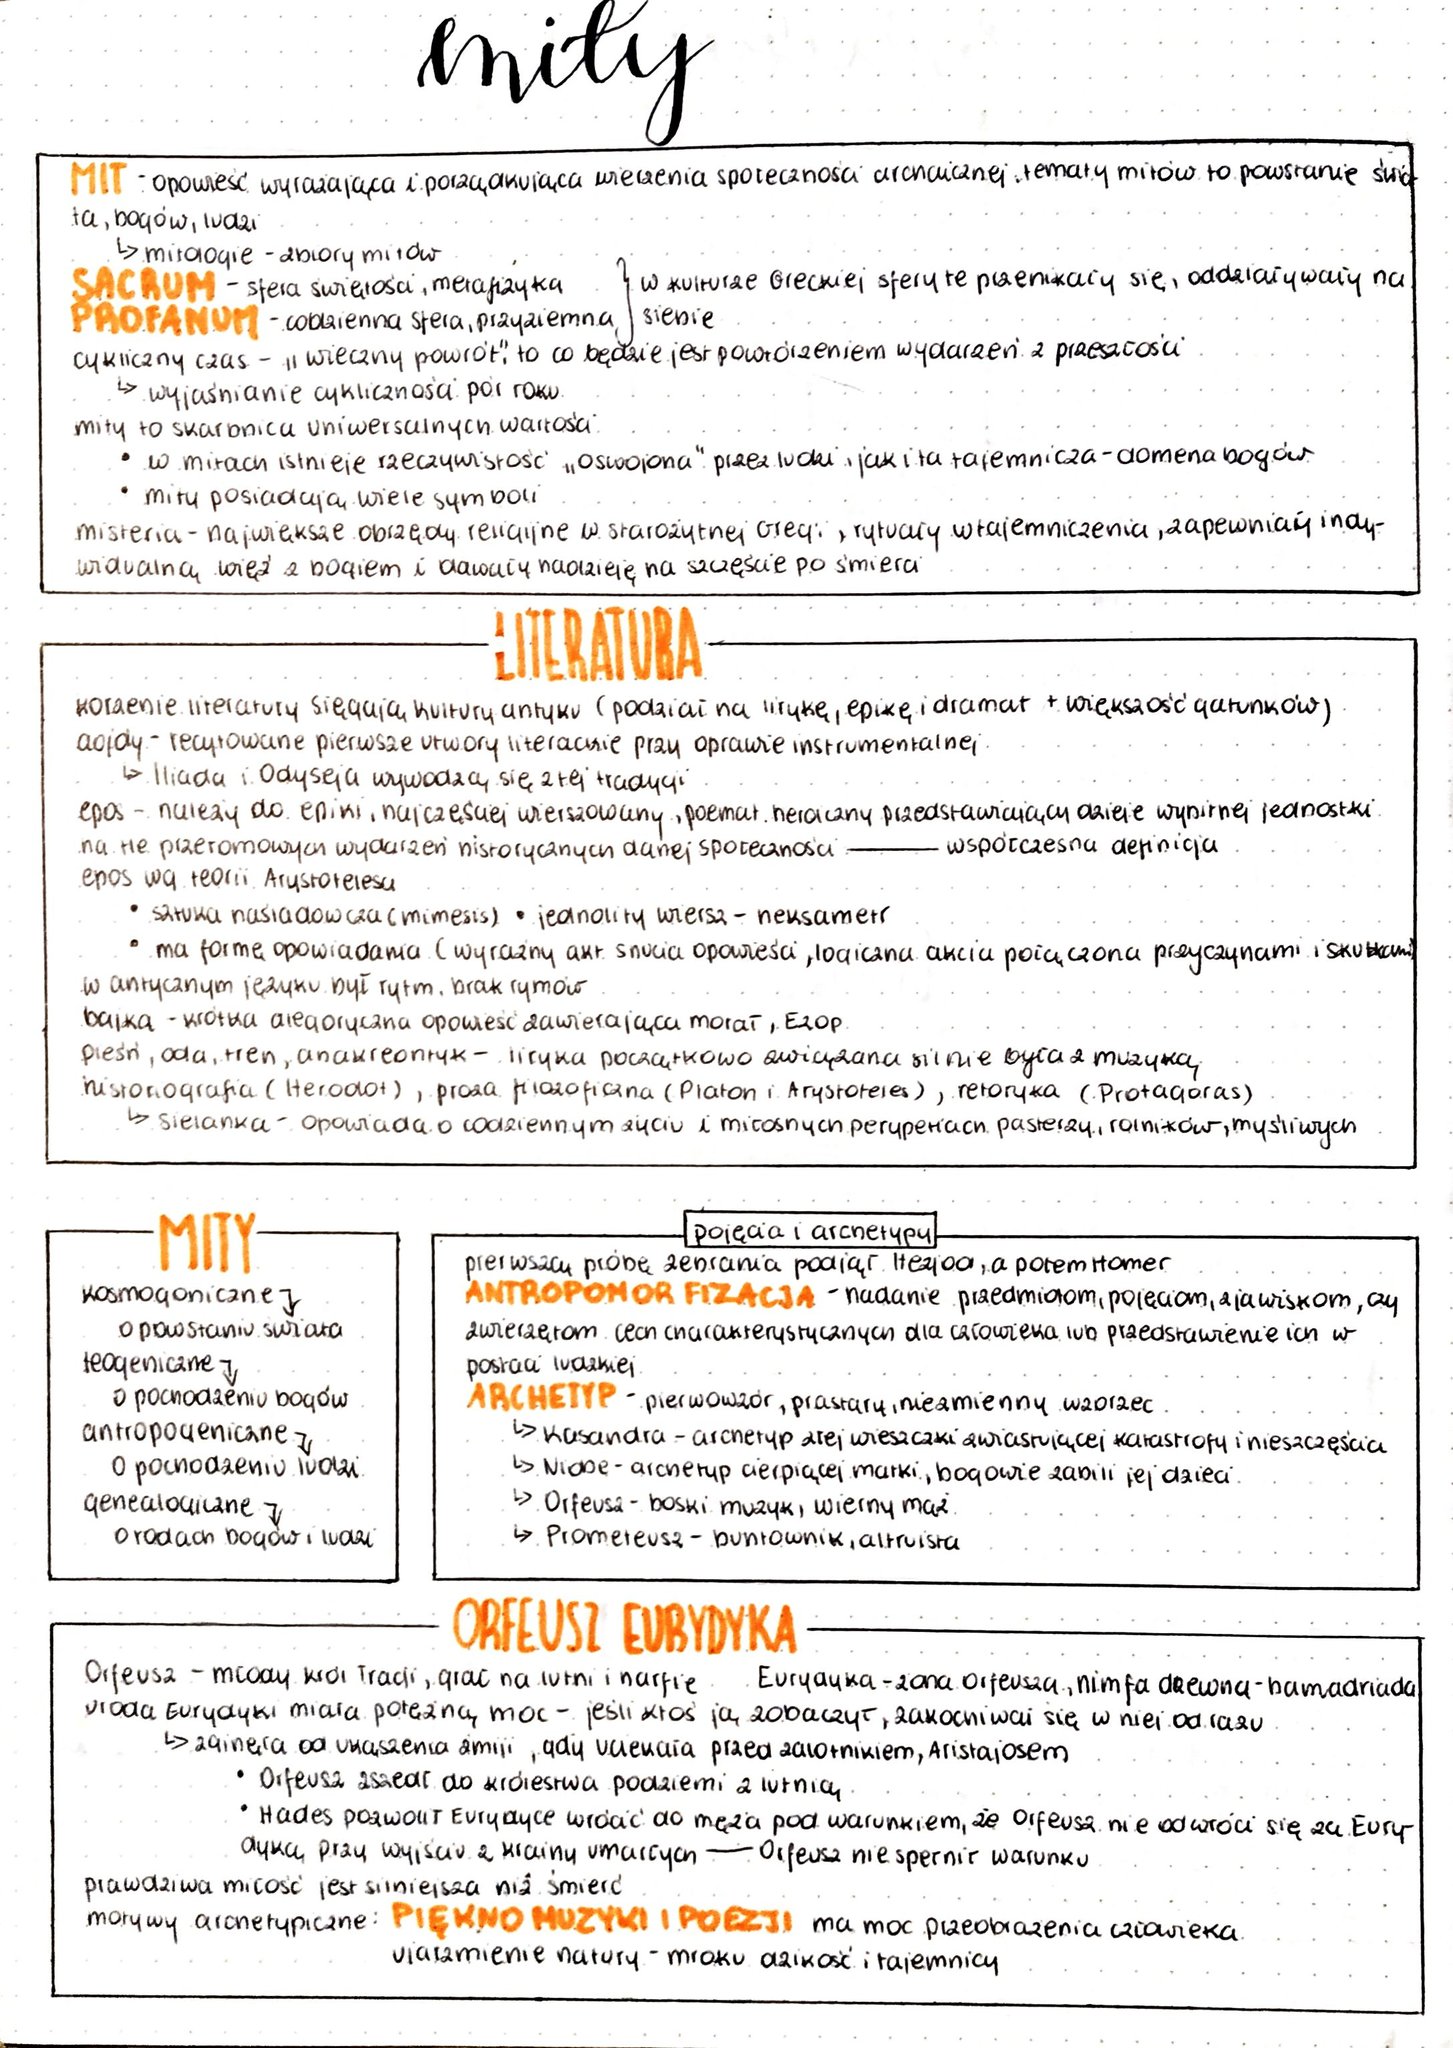 mity
MIT - opowieść wyrażająca i porządkująca wierzenia społeczności archaicznej, tematy mitów to powstanie świa-
ta, bogów, ludzi
↳ mitologie - zbiory mitów
SACRUM - sfera świętości, metafizyka
PROFANUM - codzienna sfera, przyziemna
} w kulturze Greckiej sfery te przenikały się, oddziaływały na
siebie
cykliczny czas - „wieczny powrót", to co będzie jest powtórzeniem wydarzeń z przeszłości
↳ wyjaśnianie cykliczności pór roku
mity to skarbnica uniwersalnych wartości
• w mitach istnieje rzeczywistość „oswojona" przez ludzi, jak i ta tajemnicza - domena bogów
• mity posiadają wiele symboli
misteria - największe obrzędy religijne w starożytnej Grecji, rytuały wtajemniczenia, zapewniały indy-
widualną więź z bogiem i dawały nadzieję na szczęście po śmierci
LITERATURA
korzenie literatury sięgają kultury antyku (podział na lirykę, epikę i dramat + większość gatunków)
aojdy - recytowane pierwsze utwory literackie przy oprawie instrumentalnej
↳ Iliada i Odyseja wywodzą się z tej tradycji
epos - należy do epiki, najczęściej wierszowany, poemat heroiczny przedstawiający dzieje wybitnej jednostki
na tle przełomowych wydarzeń historycznych danej społeczności —— współczesna definicja
epos wg teorii Arystotelesa
• sztuka naśladowcza (mimesis) • jednolity wiersz - heksametr
• ma formę opowiadania (wyraźny akt snucia opowieści, logiczna akcja połączona przyczynami i skutkami)
w antycznym języku był rytm, brak rymów
bajka - krótka alegoryczna opowieść zawierająca morał, Ezop
pieśń, oda, tren, anakreontyk - liryka początkowo związana silnie była z muzyką
historiografia (Herodot), proza filozoficzna (Platon i Arystoteles), retoryka (Protagoras)
↳ sielanka - opowiada o codziennym życiu i miłosnych perypetiach pasterzy, rolników, myśliwych
MITY
kosmogoniczne ↴
o powstaniu świata
teogeniczne ↴
o pochodzeniu bogów
antropogeniczne ↴
o pochodzeniu ludzi
genealogiczne ↴
o rodach bogów i ludzi
pojęcia i archetypy
pierwszą próbę zebrania podjął Hezjod, a potem Homer
ANTROPOMORFIZACJA - nadanie przedmiotom, pojęciom, zjawiskom, czy
zwierzętom cech charakterystycznych dla człowieka lub przedstawienie ich w
postaci ludzkiej
ARCHETYP - pierwowzór, prastary, niezmienny wzorzec
↳ Kasandra - archetyp złej wieszczki zwiastującej katastrofy i nieszczęścia
↳ Niobe - archetyp cierpiącej matki, bogowie zabili jej dzieci
↳ Orfeusz - boski muzyk, wierny mąż
↳ Prometeusz - buntownik, altruista
ORFEUSZ EURYDYKA
Orfeusz - młody król Tracji, grał na lutni i harfie Eurydyka - żona Orfeusza, nimfa drzewna - hamadriada
uroda Eurydyki miała potężną moc - jeśli ktoś ją zobaczył, zakochiwał się w niej od razu
↳ zginęła od ukąszenia żmiji, gdy uciekała przed zalotnikiem, Aristajosem
• Orfeusz zszedł do królestwa podziemi z lutnią
• Hades pozwolił Eurydyce wrócić do męża pod warunkiem, że Orfeusz nie odwróci się za Eury-
dyką przy wyjściu z krainy umarłych —— Orfeusz nie spełnił warunku
prawdziwa miłość jest silniejsza niż śmierć
motywy archetypiczne: PIĘKNO MUZYKI I POEZJI ma moc przeobrażenia człowieka
ujarzmienie natury - mroku dzikość i tajemnicy